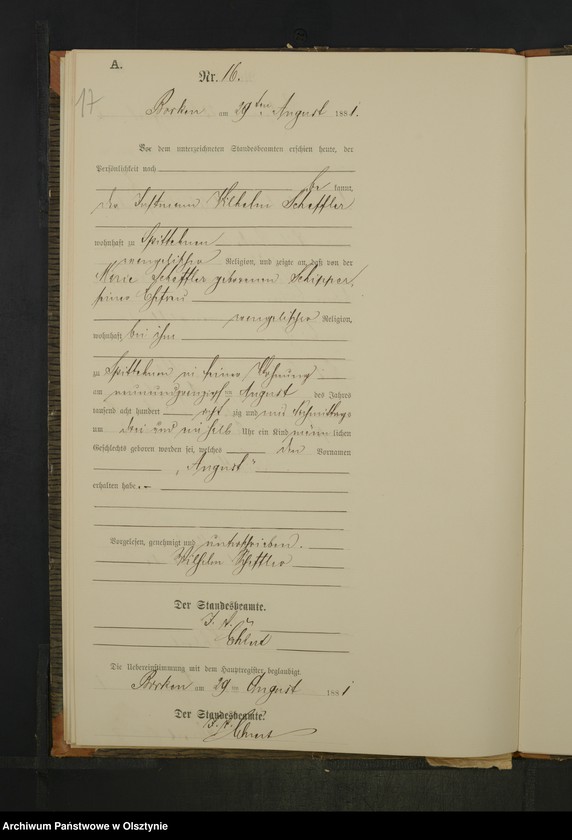 A.
Nr. 16.
17
Borken am 29ten August 1881.
Vor dem unterzeichneten Standesbeamten erschien heute, der
Persönlichkeit nach
be kannt,
der Instmann Wilhelm Scheffler
wohnhaft zu Spittehnen
evangelischer Religion, und zeigte an, daß von der
Marie Scheffler geborenen Schipper,
seiner Ehefrau
evangelischer Religion,
wohnhaft bei ihm
zu Spittehnen in seiner Wohnung
am August des Jahres
tausend acht hundert acht zig und eins
um drei und ein halb Uhr ein Kind männ lichen
Geschlechts geboren worden sei, welches den Vornamen
„August"
erhalten habe.
Vorgelesen, genehmigt und unterschrieben.
Wilhelm Scheffler
Der Standesbeamte.
J. V.
Die Uebereinstimmung mit dem Hauptregister, beglaubigt.
Borken am 29ten August 1881
Der Standesbeamte.
J. V.
Archiwum Państwowe w Olsztynie